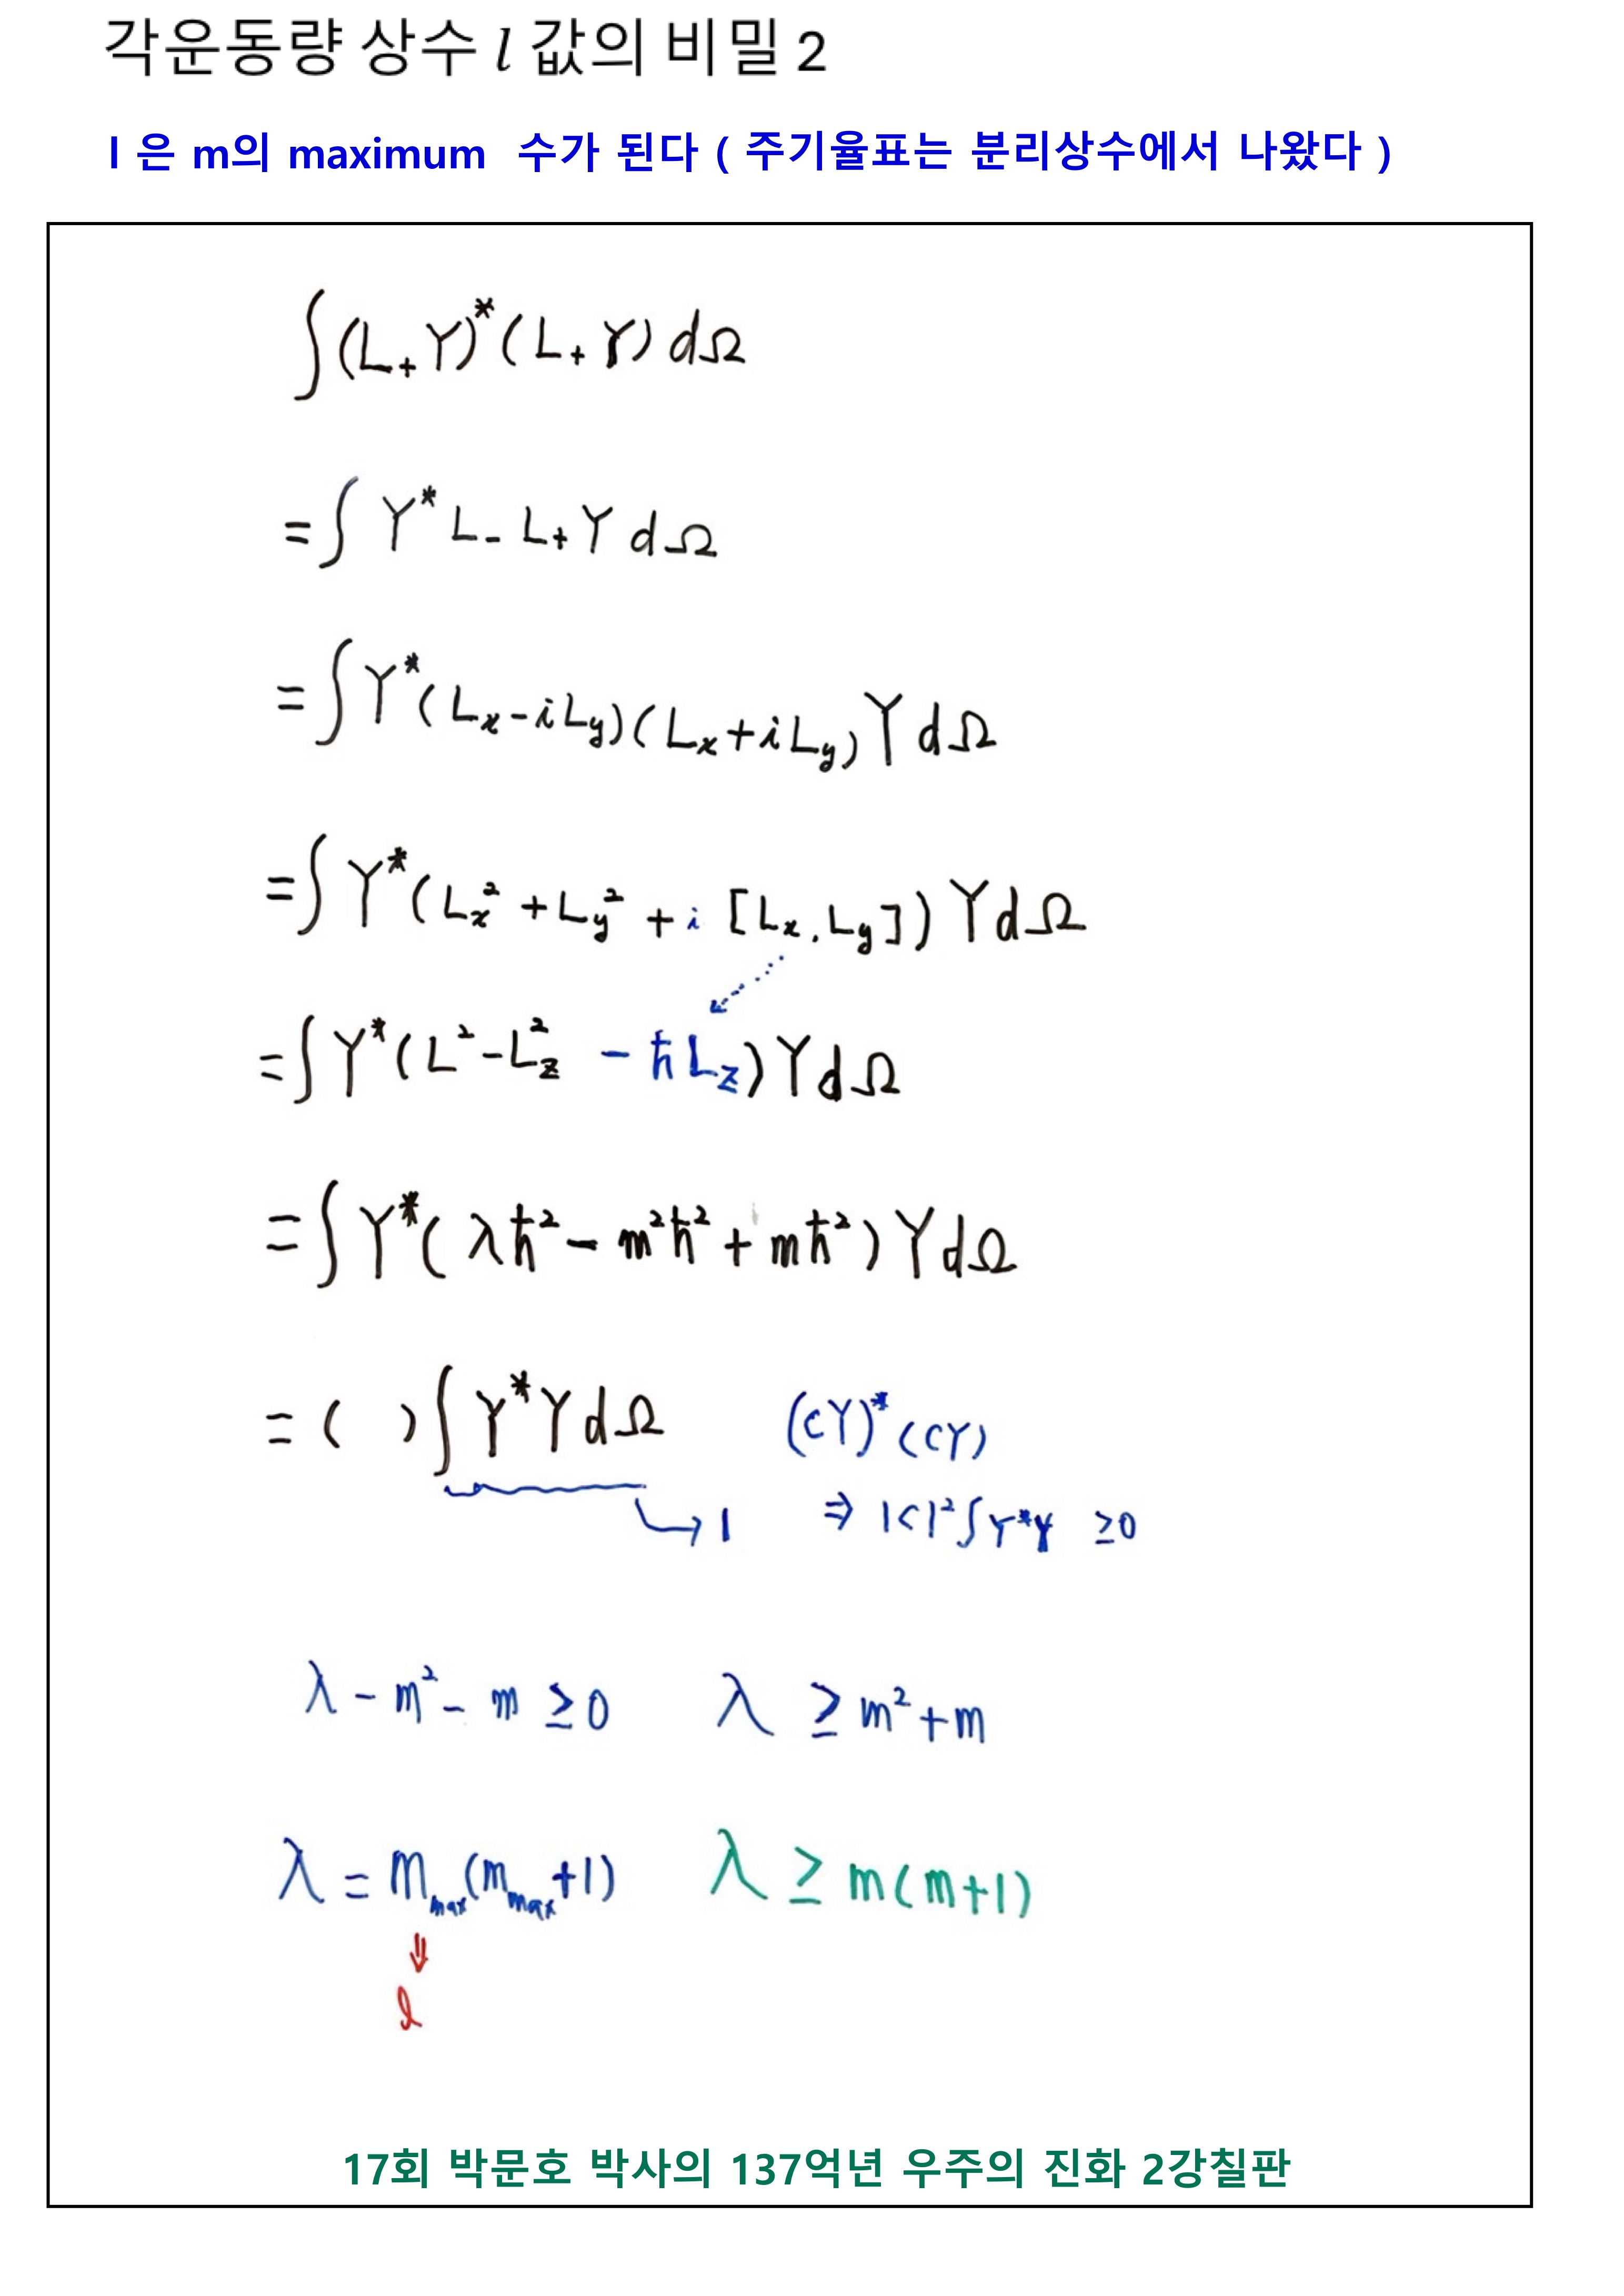 각운동량 상수 l 값의 비밀 2
l 은 m의 maximum 수가 된다 ( 주기율표는 분리상수에서 나왔다 )
∫(L₊Y)*(L₊Y) dΩ
= ∫ Y* L₋ L₊ Y dΩ
= ∫ Y*(Lₓ - iL_y)(Lₓ + iL_y) Y dΩ
= ∫ Y*(Lₓ² + L_y² + i [Lₓ, L_y]) Y dΩ
= ∫ Y*(L² - L_z² - ħL_z) Y dΩ
= ∫ Y*(λħ² - m²ħ² + mħ²) Y dΩ
= ( ) ∫ Y*Y dΩ (CY)*(CY)
→ 1 ⇒ |C|² ∫Y*Y ≥0
λ - m² - m ≥ 0 λ ≥ m² + m
λ = m_max(m_max+1) λ ≥ m(m+1)
⇓
l
17회 박문호 박사의 137억년 우주의 진화 2강칠판